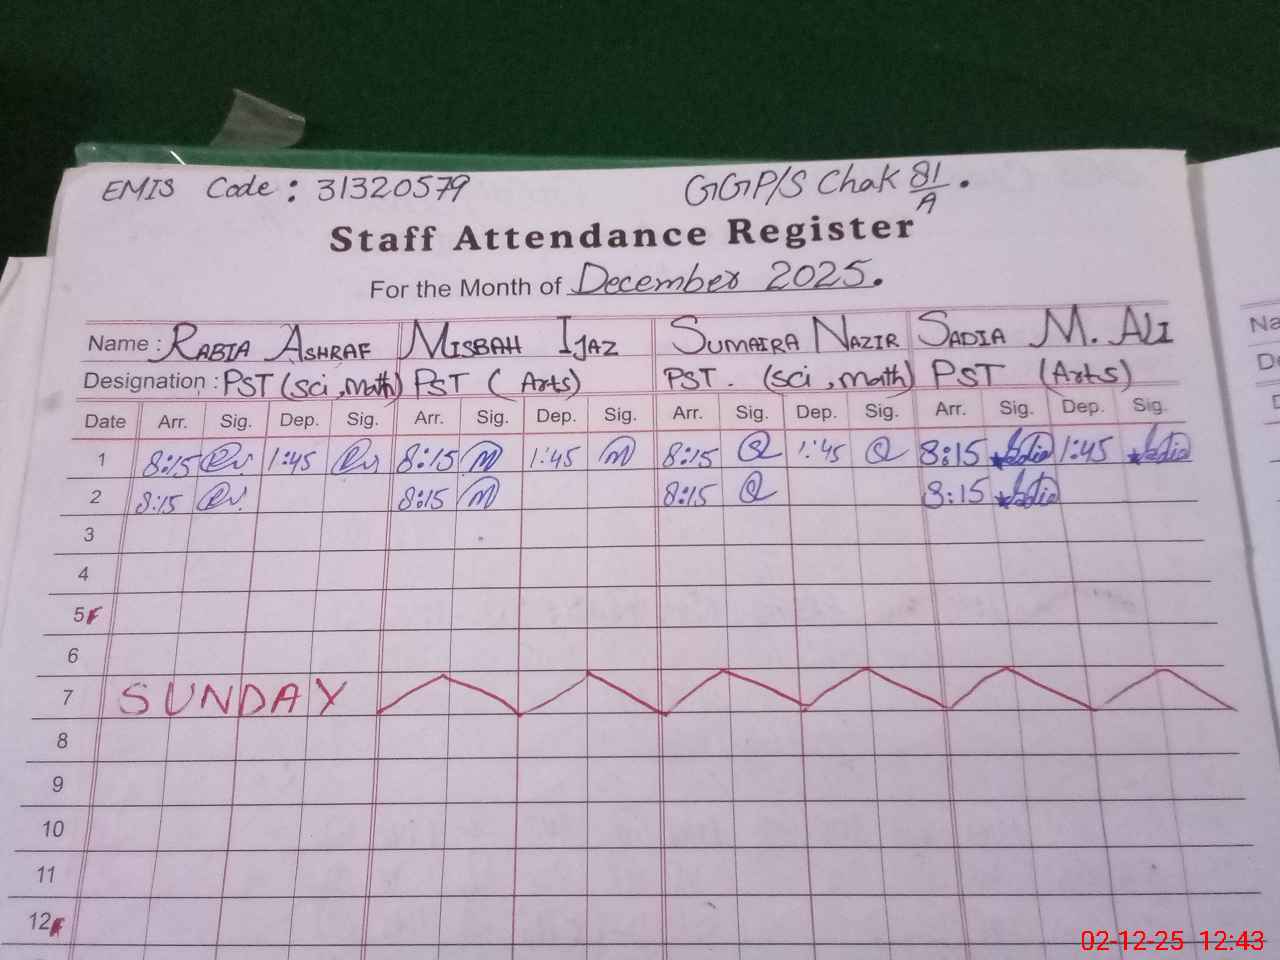 EMIS Code : 31320579 GGP/S Chak 81/A.
Staff Attendance Register
For the Month of December 2025.
Name : RABIA ASHRAF MISBAH IJAZ SUMAIRA NAZIR SADIA M. ALI
Designation : PST (Sci, math) PST ( Arts) PST. (Sci, math) PST (Arts)
Date Arr. Sig. Dep. Sig. Arr. Sig. Dep. Sig. Arr. Sig. Dep. Sig. Arr. Sig. Dep. Sig.
1 8:15 1:45 8:15 M 1:45 M 8:15 1:45 8:15 Sadia 1:45 Sadia
2 8:15 8:15 M 8:15 8:15 Sadia
3
4
5F
6
7 SUNDAY
8
9
10
11
12F
02-12-25 12:43